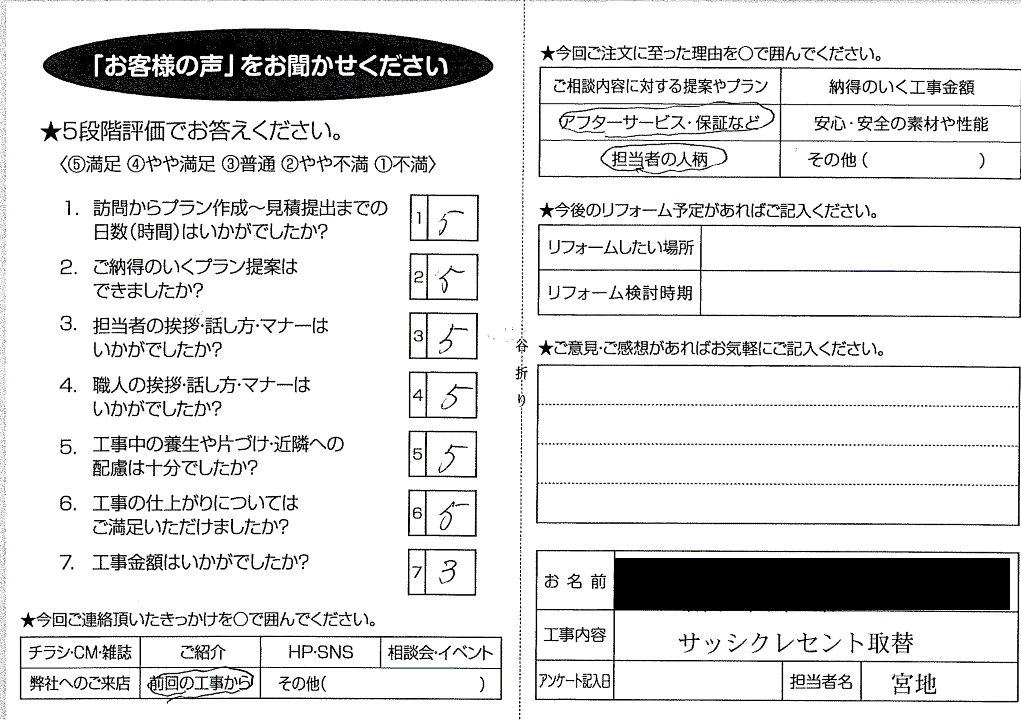 「お客様の声」をお聞かせください
★5段階評価でお答えください。
〈⑤満足 ④やや満足 ③普通 ②やや不満 ①不満〉
1. 訪問からプラン作成～見積提出までの
日数(時間)はいかがでしたか?
1 5
2. ご納得のいくプラン提案は
できましたか?
2 5
3. 担当者の挨拶・話し方・マナーは
いかがでしたか?
3 5
4. 職人の挨拶・話し方・マナーは
いかがでしたか?
4 5
5. 工事中の養生や片づけ・近隣への
配慮は十分でしたか?
5 5
6. 工事の仕上がりについては
ご満足いただけましたか?
6 5
7. 工事金額はいかがでしたか?
7 3
★今回ご連絡頂いたきっかけを○で囲んでください。
チラシ・CM・雑誌 ご紹介 HP・SNS 相談会・イベント
弊社へのご来店 前回の工事から その他( )
谷折り
★今回ご注文に至った理由を○で囲んでください。
ご相談内容に対する提案やプラン 納得のいく工事金額
アフターサービス・保証など 安心・安全の素材や性能
担当者の人柄 その他( )
★今後のリフォーム予定があればご記入ください。
リフォームしたい場所
リフォーム検討時期
★ご意見・ご感想があればお気軽にご記入ください。
お名前
工事内容 サッシクレセント取替
アンケート記入日 担当者名 宮地